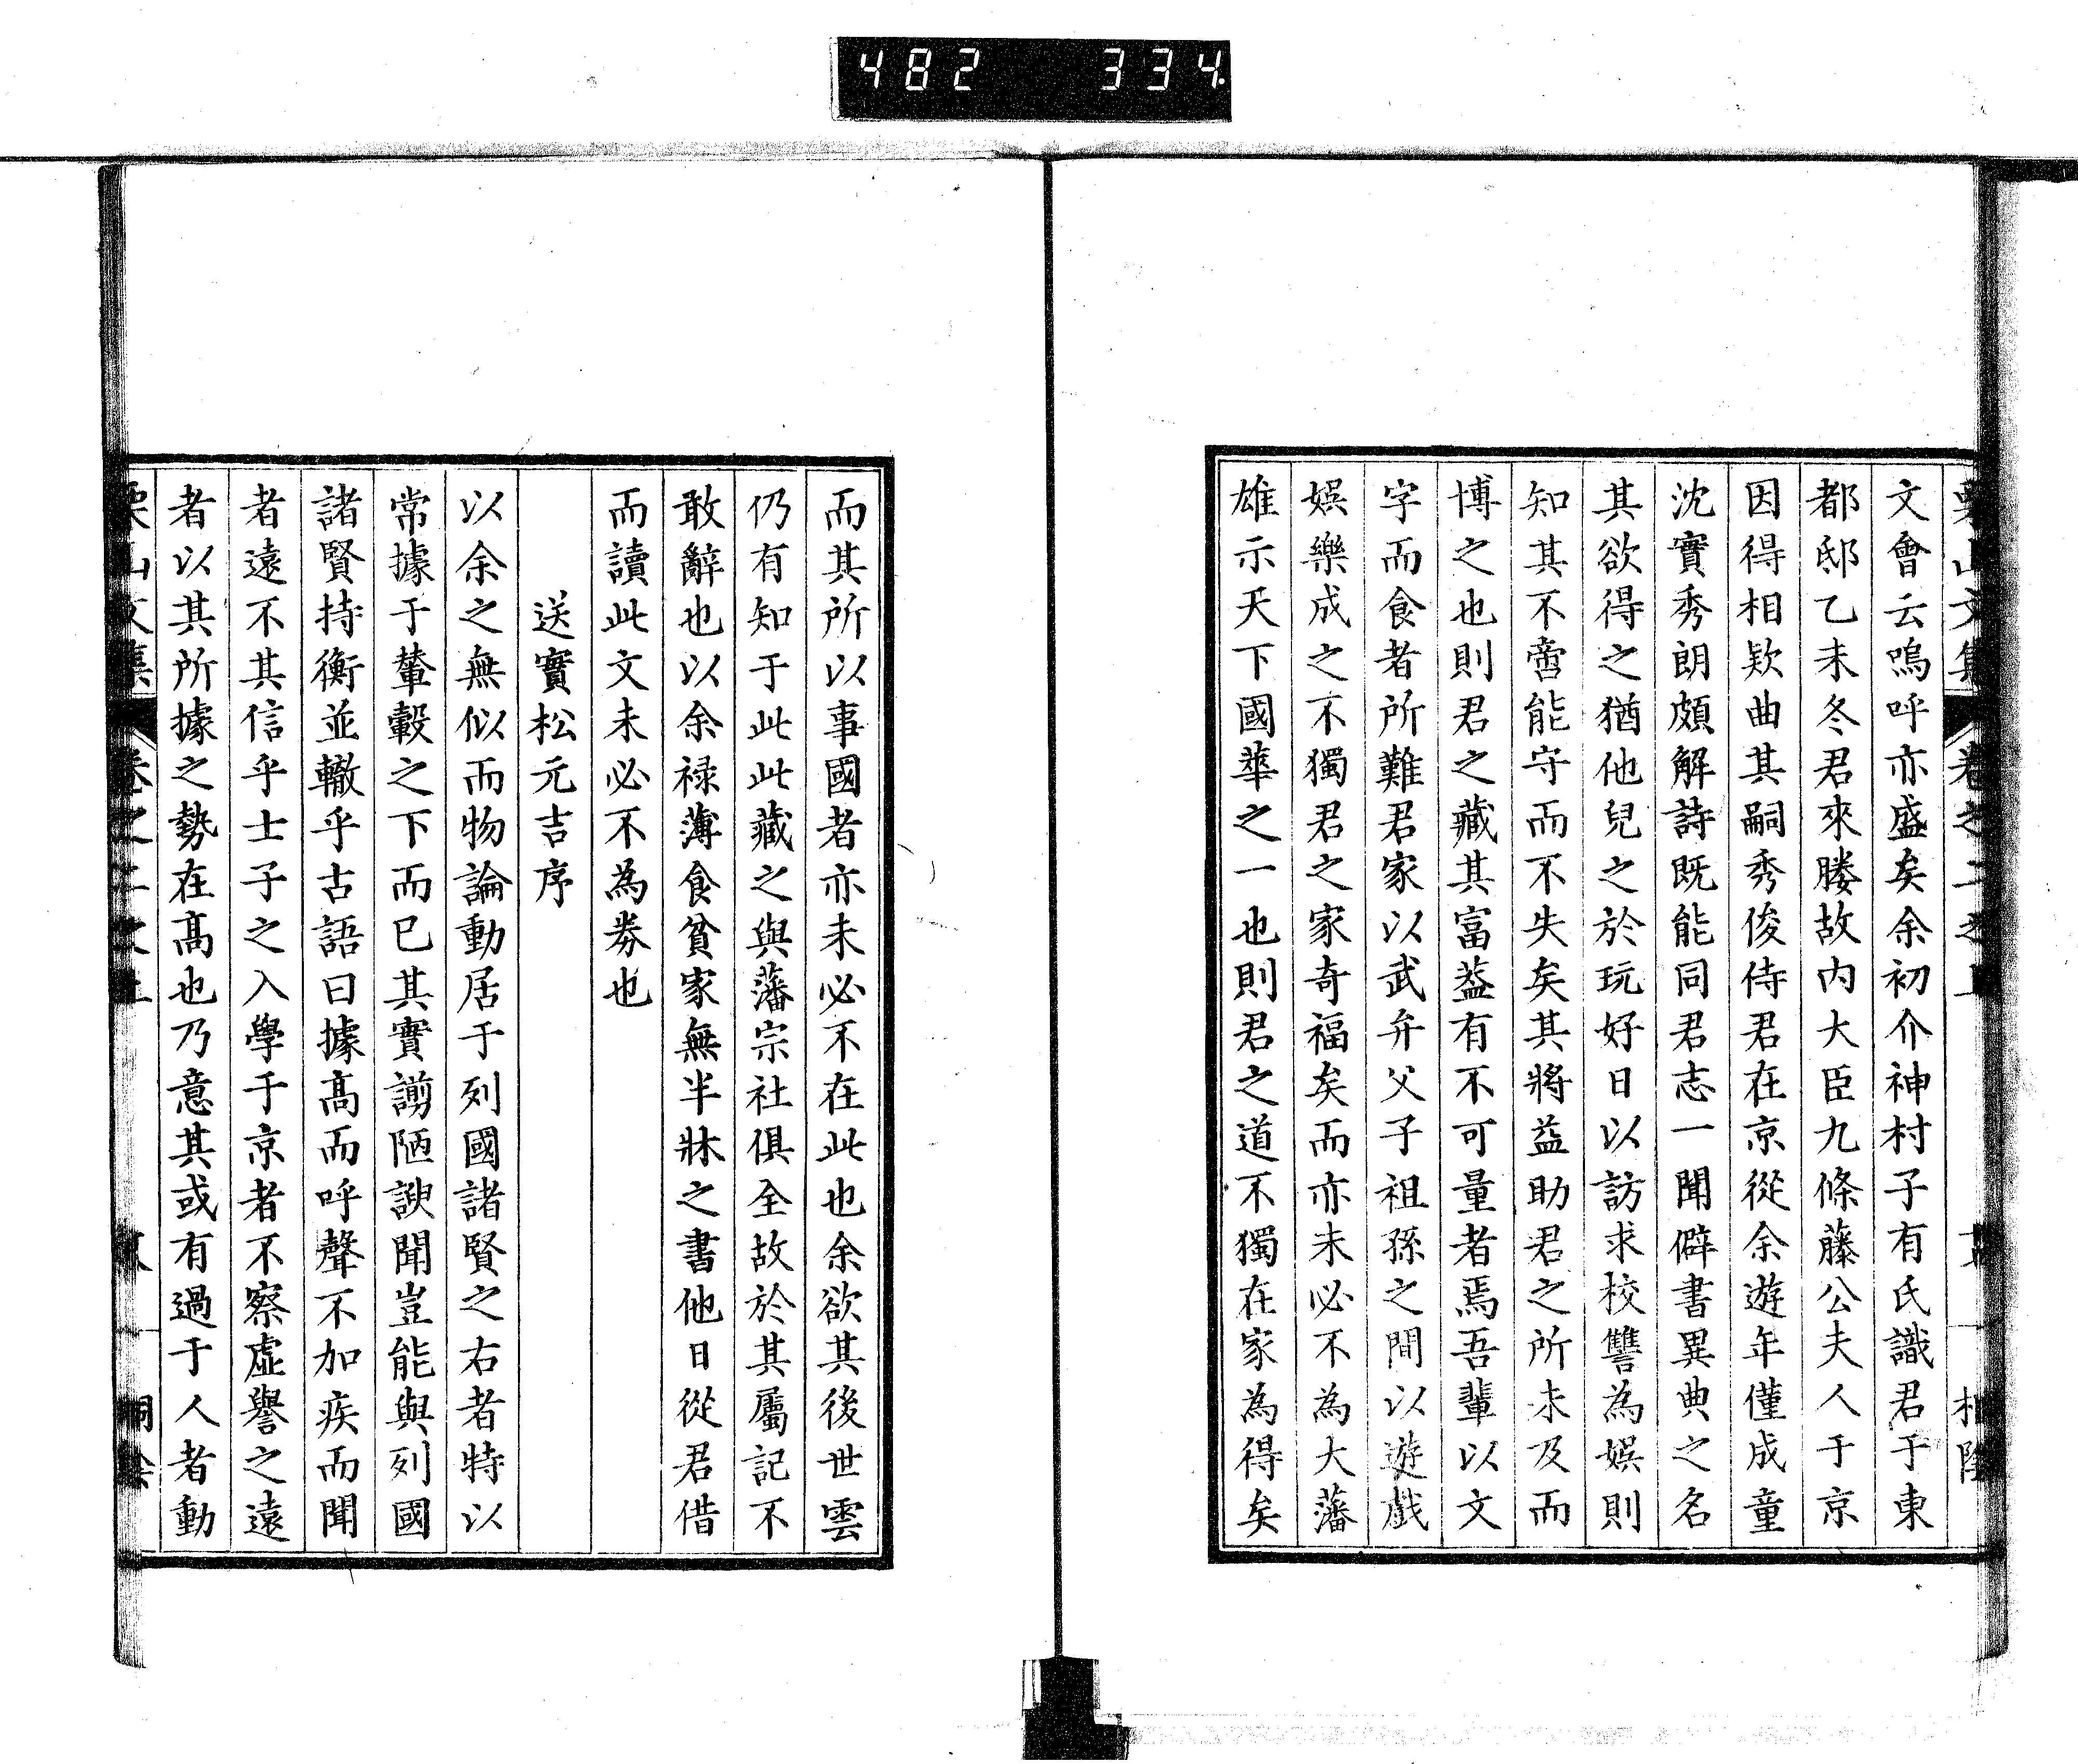 482 334
文會云嗚呼亦盛矣余初介神村子有氏識君于東
都邸乙未冬君來媵故內大臣九條藤公夫人于京
因得相欵曲其嗣秀俊侍君在京從余遊年僅成童
沈實秀朗頗解詩既能同君志一聞僻書異典之名
其欲得之猶他兒之於玩好日以訪求校讐為娛則
知其不啻能守而不失矣其將益助君之所未及而
博之也則君之藏其富葢有不可量者焉吾輩以文
字而食者所難君家以武弁父子祖孫之間以遊戲
娛樂成之不獨君之家奇福矣而亦未必不為大藩
雄示天下國華之一也則君之道不獨在家為得矣
而其所以事國者亦未必不在此也余欲其後世雲
仍有知于此此藏之與藩宗社俱全故於其屬記不
敢辭也以余祿薄食貧家無半牀之書他日從君借
而讀此文未必不為劵也
送實松元吉序
以余之無似而物論動居于列國諸賢之右者特以
常據于輦轂之下而已其實謭陋諛聞豈能與列國
諸賢持衡並轍乎古語曰據高而呼聲不加疾而聞
者遠不其信乎士子之入學于京者不察虛譽之遠
者以其所據之勢在高也乃意其或有過于人者動